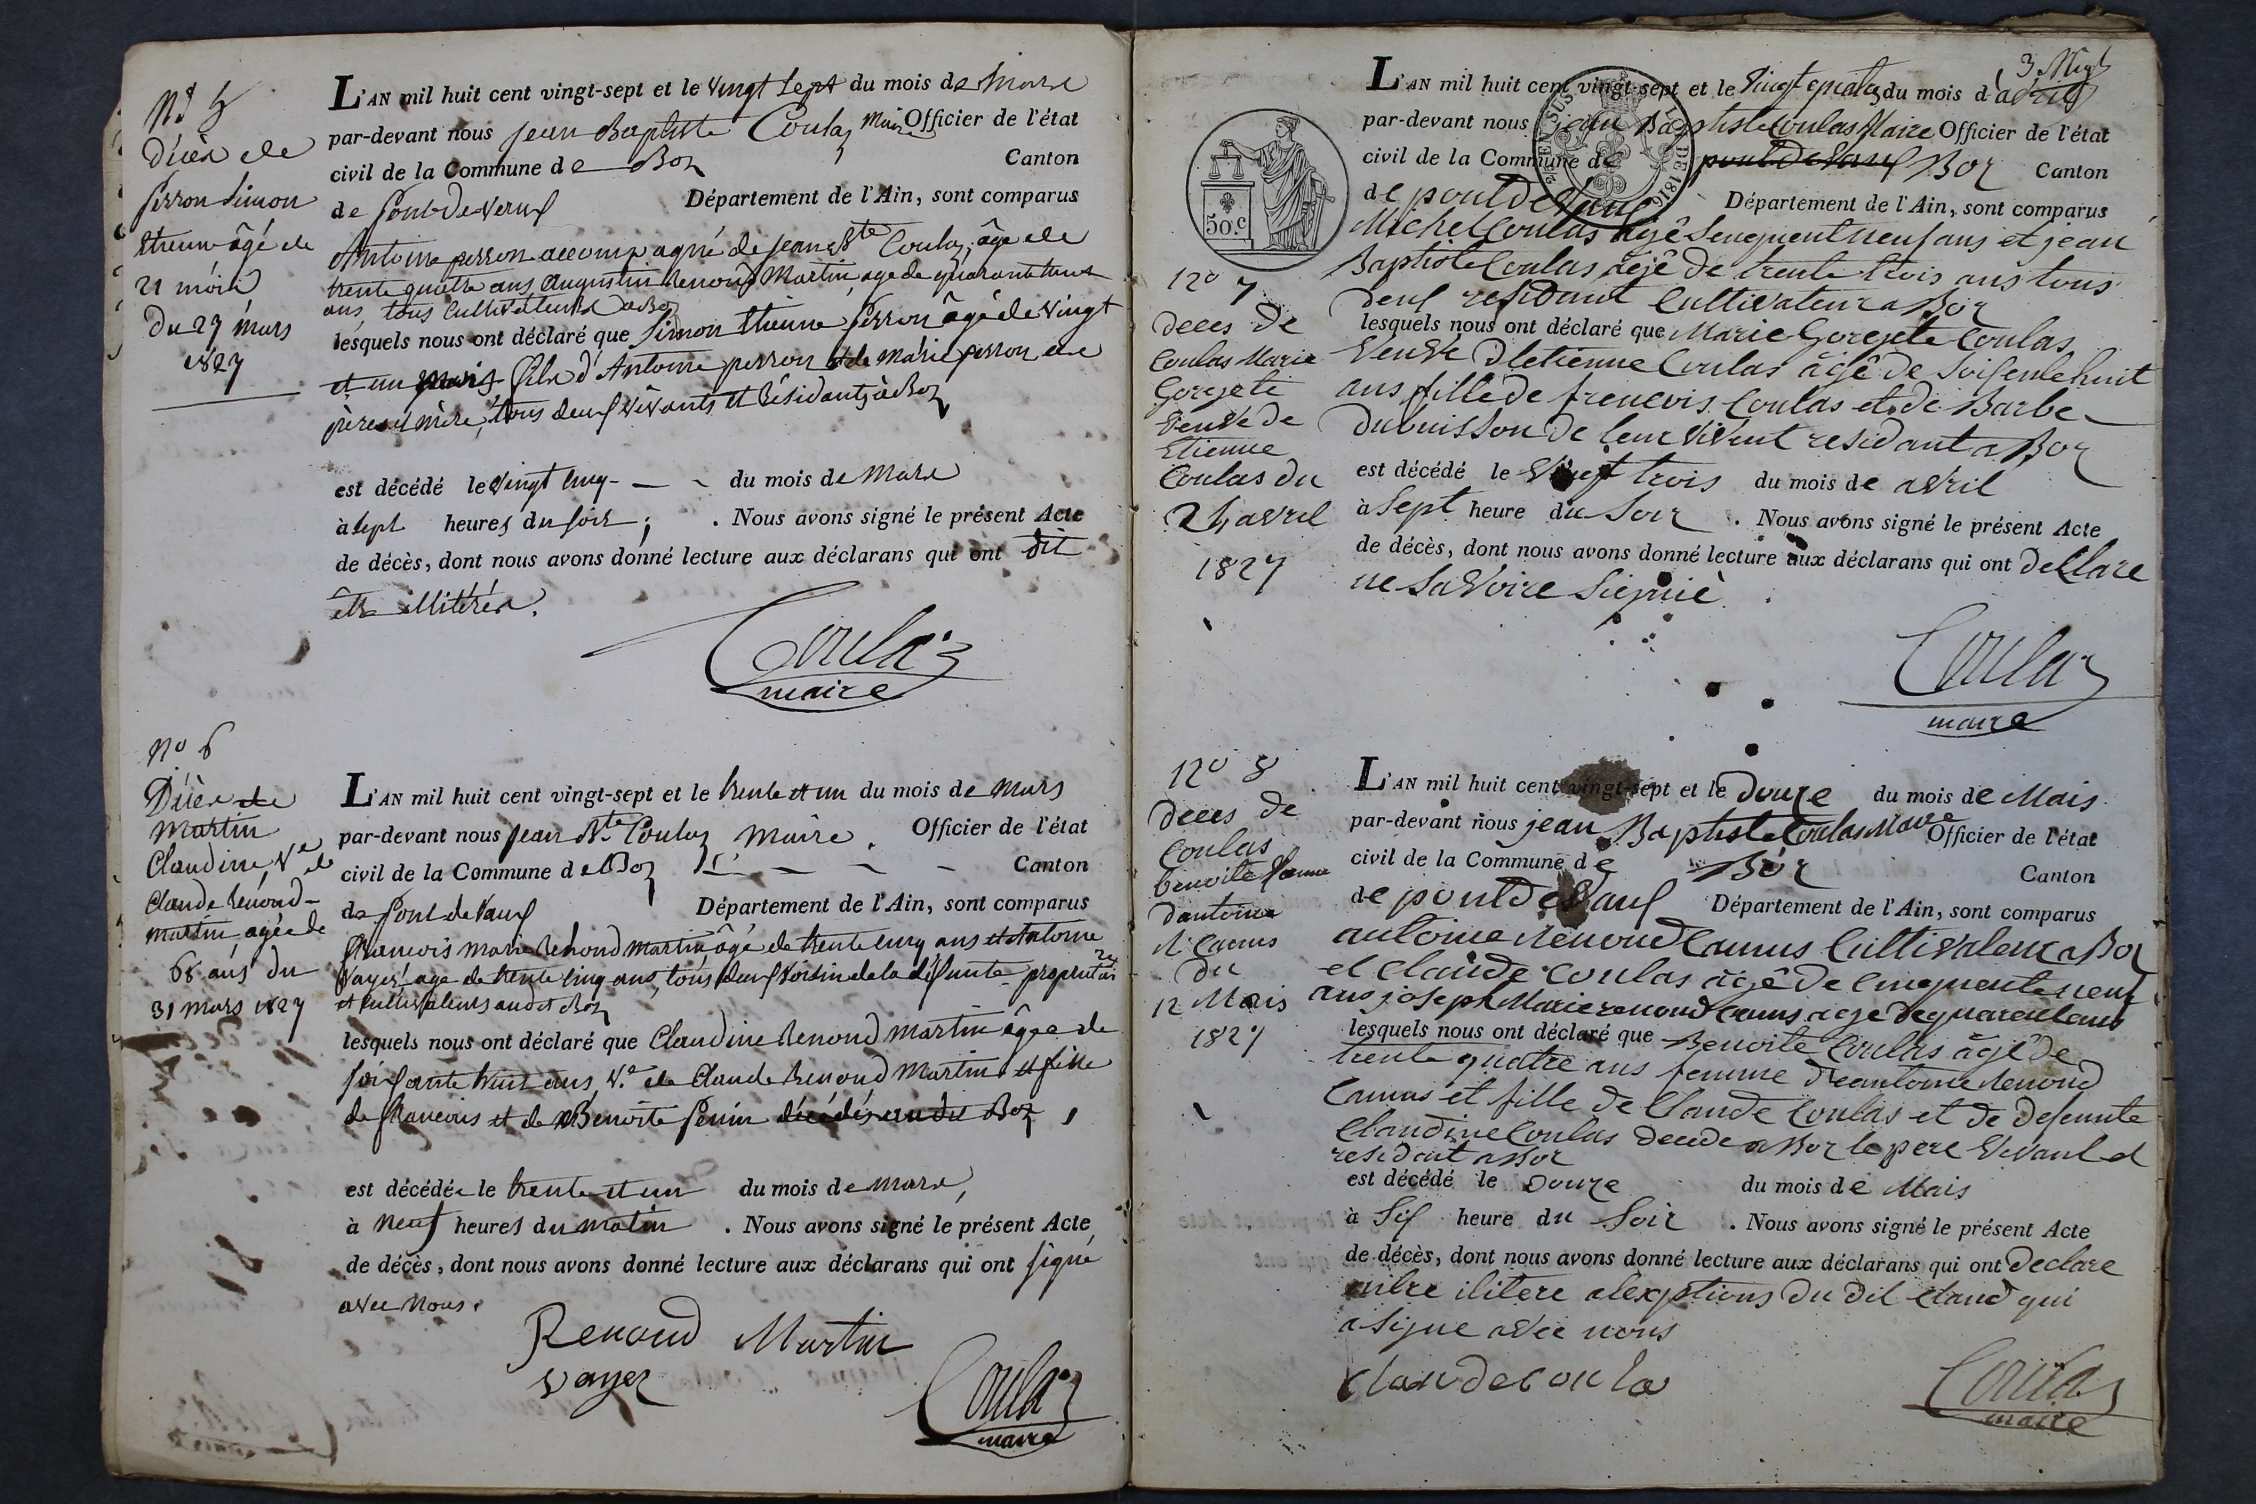 N° 5
Décès de
Perron Simon
Etienne âgé de
21 mois
du 27 mars
1827
L'AN mil huit cent vingt-sept et le vingt sept du mois de Mars
par-devant nous jean Baptiste Coulas Maire Officier de l'état
civil de la Commune de Boz Canton
de Pont-de-Vaux Département de l'Ain, sont comparus
Antoine perron accompagné de jean Bte Coulas, âgé de
trente quatre ans, Augustin Renoud Martin, age de quarante
ans tous Cultivateurs a Boz
lesquels nous ont déclaré que Simon Etienne Perron âgé de vingt
et un mois fils d'Antoine perron et de Marie perron
père et mère, tous deux vivants et résidants à Boz
est décédé le vingt cinq du mois de Mars
à sept heures du soir ; . Nous avons signé le présent Acte
de décès, dont nous avons donné lecture aux déclarans qui ont dit
être illitérés.
Coulas
maire
N° 6
Décès de
Martin
Claudine, Ve de
Claude Renoud-
Martin agée de
68 ans du
31 mars 1827
L'AN mil huit cent vingt-sept et le trente et un du mois de Mars
par-devant nous jean Bte Coulas Maire. Officier de l'état
civil de la Commune de Boz Canton
de Pont de Vaux Département de l'Ain, sont comparus
François Marie Renoud Martin âgé de trente cinq ans et Antoine
Vayer age de trente cinq ans, tous deux Voisin de la défunte propriétaires
et Cultivateurs audit Boz
lesquels nous ont déclaré que Claudine Renoud Martin âgée de
soixante huit ans Ve de Claude Renoud Martin et fille
de François et de Benoite décédés audit Boz,
est décédée le trente et un du mois de Mars,
à neuf heures du matin . Nous avons signé le présent Acte
de décès, dont nous avons donné lecture aux déclarans qui ont signé
avec Nous.
Renoud Martin
vayer
Coulas
maire
3
L'AN mil huit cent vingt-sept et le Vingt quatre du mois d'avril
par-devant nous jean Baptiste Coulas Maire Officier de l'état
civil de la Commune de pont de Vaux Boz Canton
de pont de Vaux Département de l'Ain, sont comparus
50.c
DE 1816
N° 7
deces de
Coulas Marie
Gorejete
Veuve de
Etienne
Coulas du
24 avril
1827
Michel Coulas agé senquent neuf ans et jean
Baptiste Coulas âgé de trente trois ans tous
deux residant Cultivateur a Boz
lesquels nous ont déclaré que Marie Gorejete Coulas
Veuve D'etienne Coulas âgé de soisente huit
ans fille de frencois Coulas et de Barbe
Dubuisson de leur vivent residant a Boz
est décédé le Vingt trois du mois de avril
à Sept heure du Soir . Nous avons signé le présent Acte
de décès, dont nous avons donné lecture aux déclarans qui ont declare
ne Savoire Signiè
Coulas
maire
N° 8
deces de
Coulas
benoite femme
dantoine
R Camus
du
12 Mais
1827
L'AN mil huit cent vingt-sept et le douze du mois de Mais
par-devant nous jean Baptiste Coulas Maire Officier de l'état
civil de la Commune de Boz Canton
de pont de Vaux Département de l'Ain, sont comparus
antoine Renoud Camus Cultivateur a Boz
et Claude Coulas âgé de cinquente neuf
ans joseph Marie renoud Camus age de quarente ans
lesquels nous ont déclaré que Benoite Coulas âgé de
trente quatre ans femme D'eantoine Renoud
Camus et fille de Claude Coulas et de defunte
Claudine Coulas decede a Boz le pere Vivant et
residant a Boz
est décédé le douze du mois de Mais
à Six heure du Soir . Nous avons signé le présent Acte
de décès, dont nous avons donné lecture aux déclarans qui ont declare
ilitere alexptions du dit claud qui
a Signe avec nous
claude coula
Coulas
maire